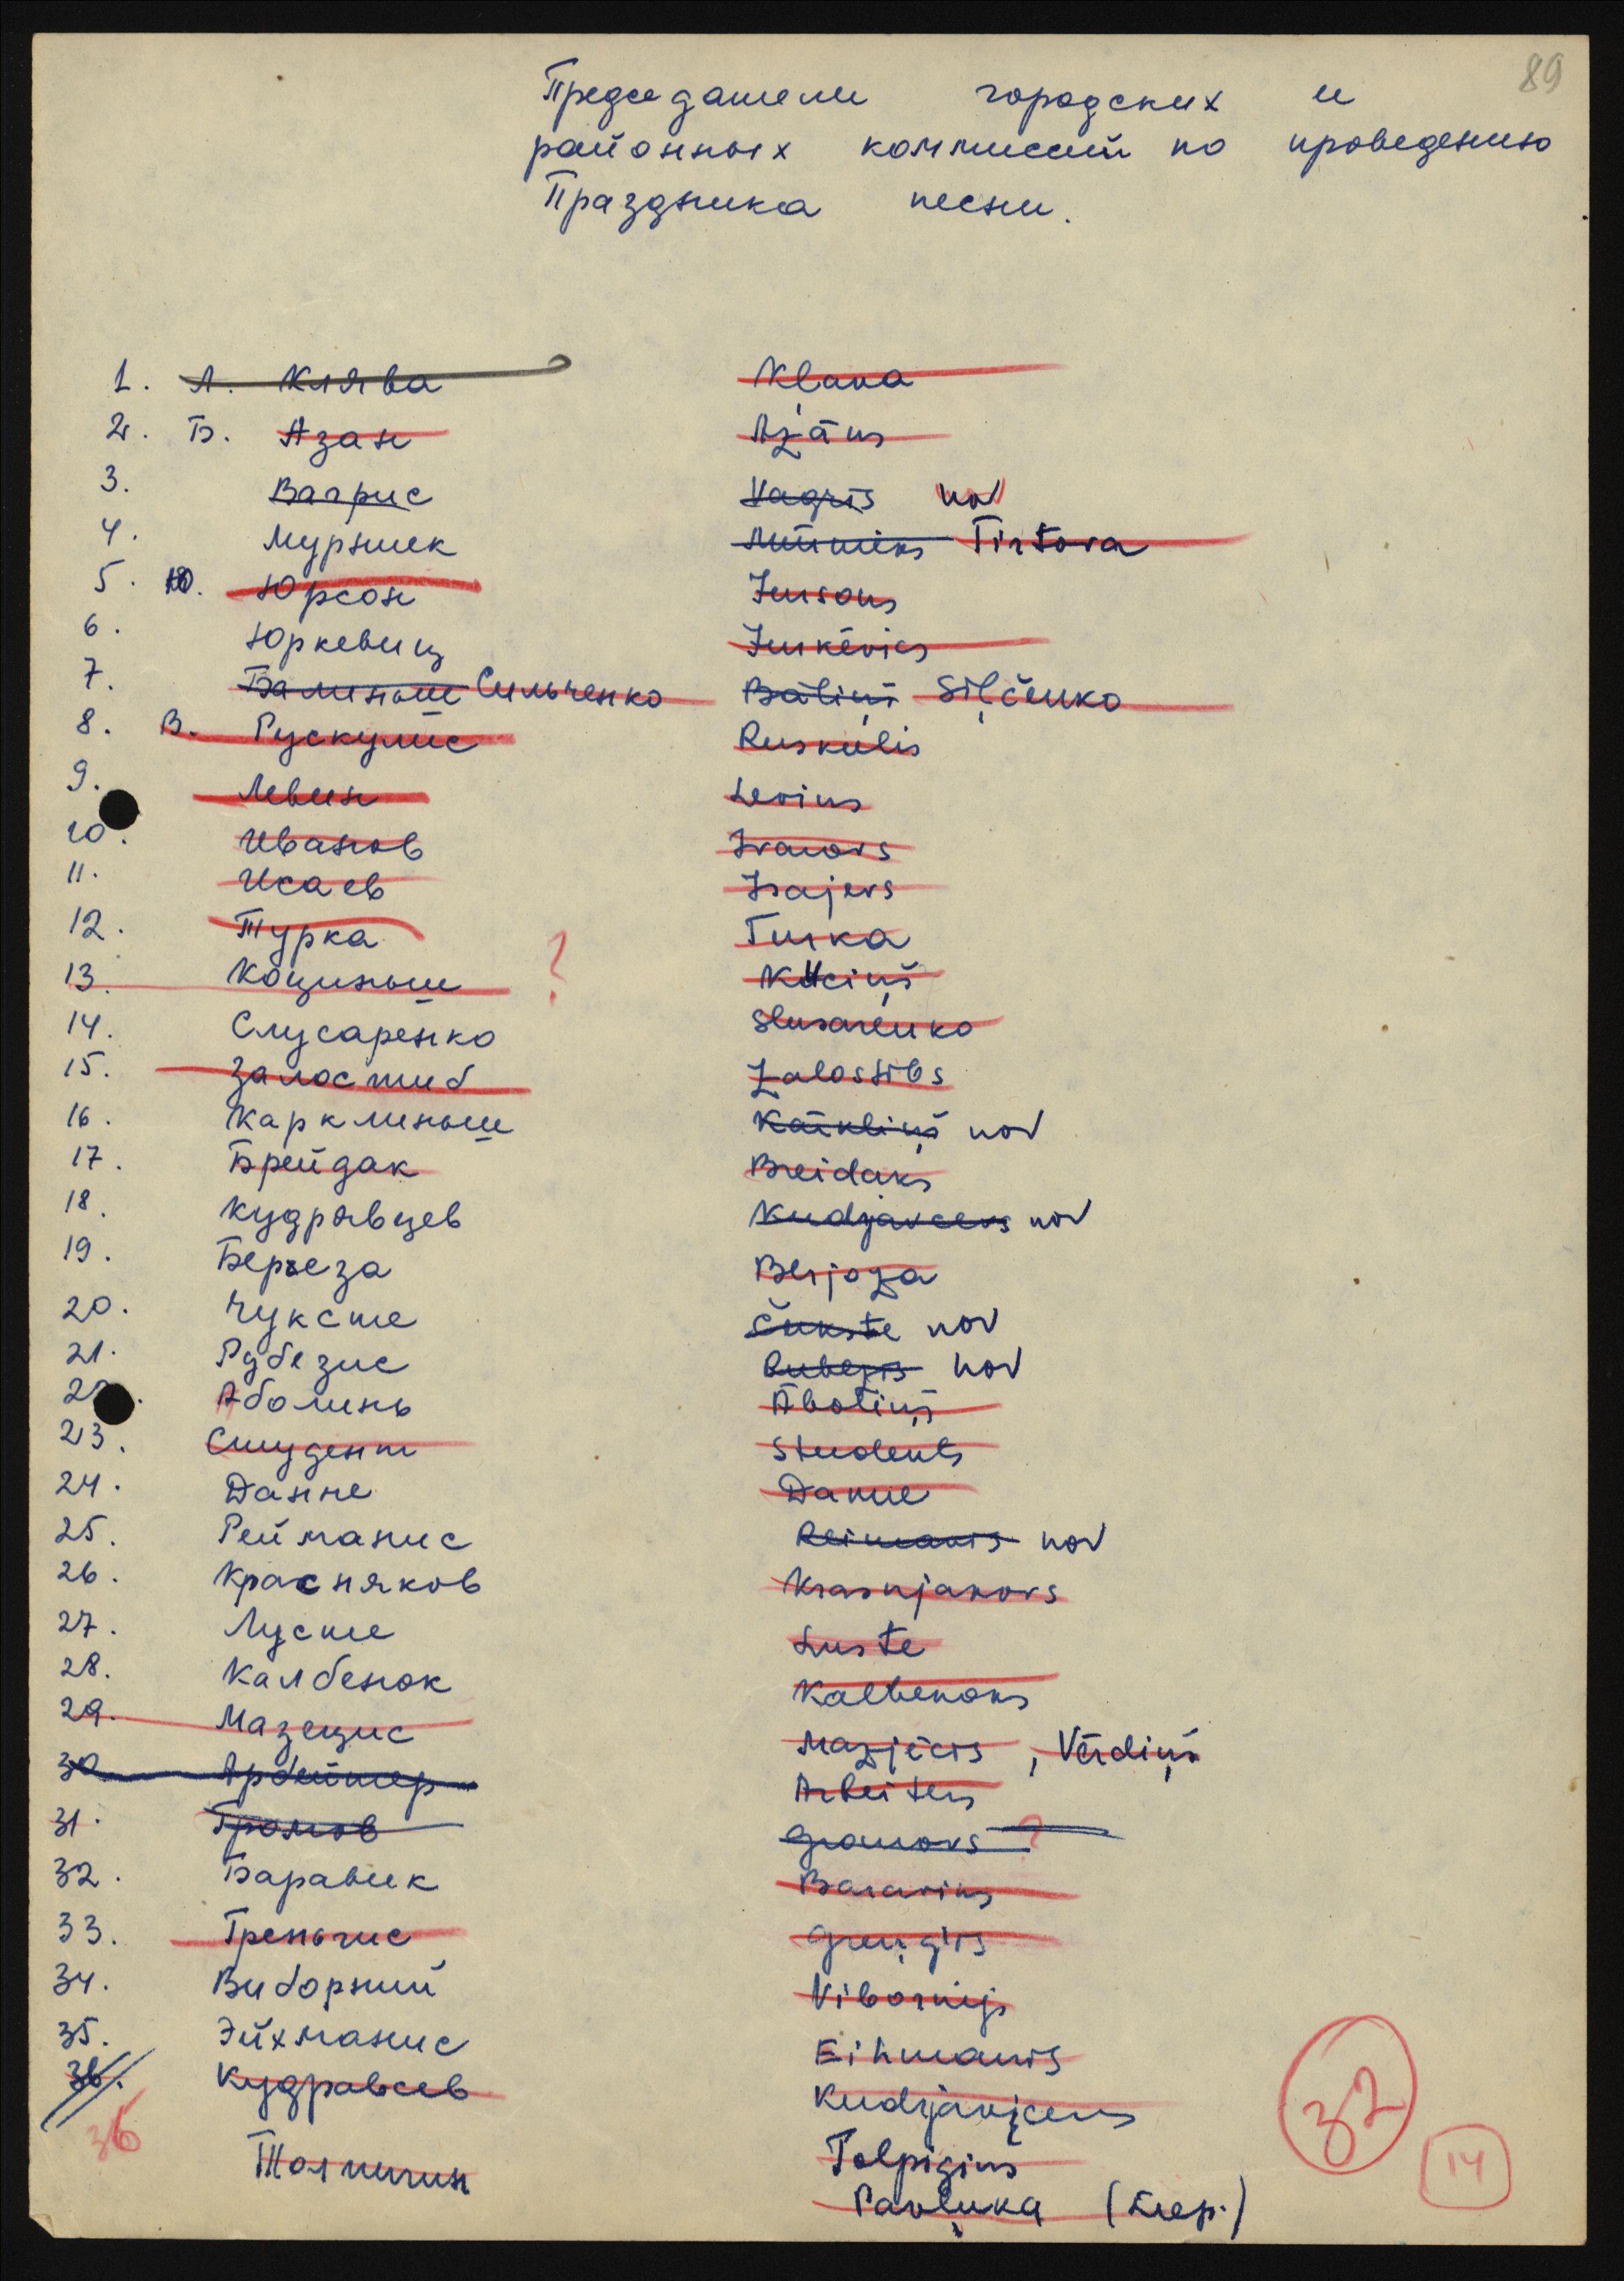 89
Председатели городских и
районных коммиссий по проведению
Праздника песни.
1. Л. Клява Kļava
2. Б. Азан Azāns
3. Вагрис Vagris nav
4. Мурниек Mūrnieks Tirtova
5. Ю. Юрсон Jursons
6. Юркевиц Jurkēvics
7. Балиньш Сильченко Bāliņš Siļčenko
8. В. Рускулис Ruskulis
9. Левин Levins
10. Иванов Ivanovs
11. Исаев Isajevs
12. Турка Turka
13. Коциньш ? Kuciņš
14. Слусаренко Slusarenko
15. Залостиб Zalostibs
16. Карклиньш Kārkliņš nav
17. Брейдак Breidaks
18. Кудрявцев Kudrjavcevs nav
19. Береза Berjoza
20. Чуксте Čukste nav
21. Рубезис Rubezis nav
22. Аболинь Āboliņš
23. Студент Students
24. Данне Danne
25. Рейманис Reimanis nav
26. Красняков Krasnjakovs
27. Лусте Luste
28. Калбенок Kalbenoks
29. Мазецис Mazjēcis, Vērdiņš
30. Арбейтер Arbeiters
31. Громов Gromovs ?
32. Баравик Baraviks
33. Греньгис Greņģis
34. Виборний Vibornijs
35. Эйхманис Eihmanis
36. Кудравсев Kudrjavjcevs
36
Толпигин Tolpigins
Pavļuka (Liep.)
32
14